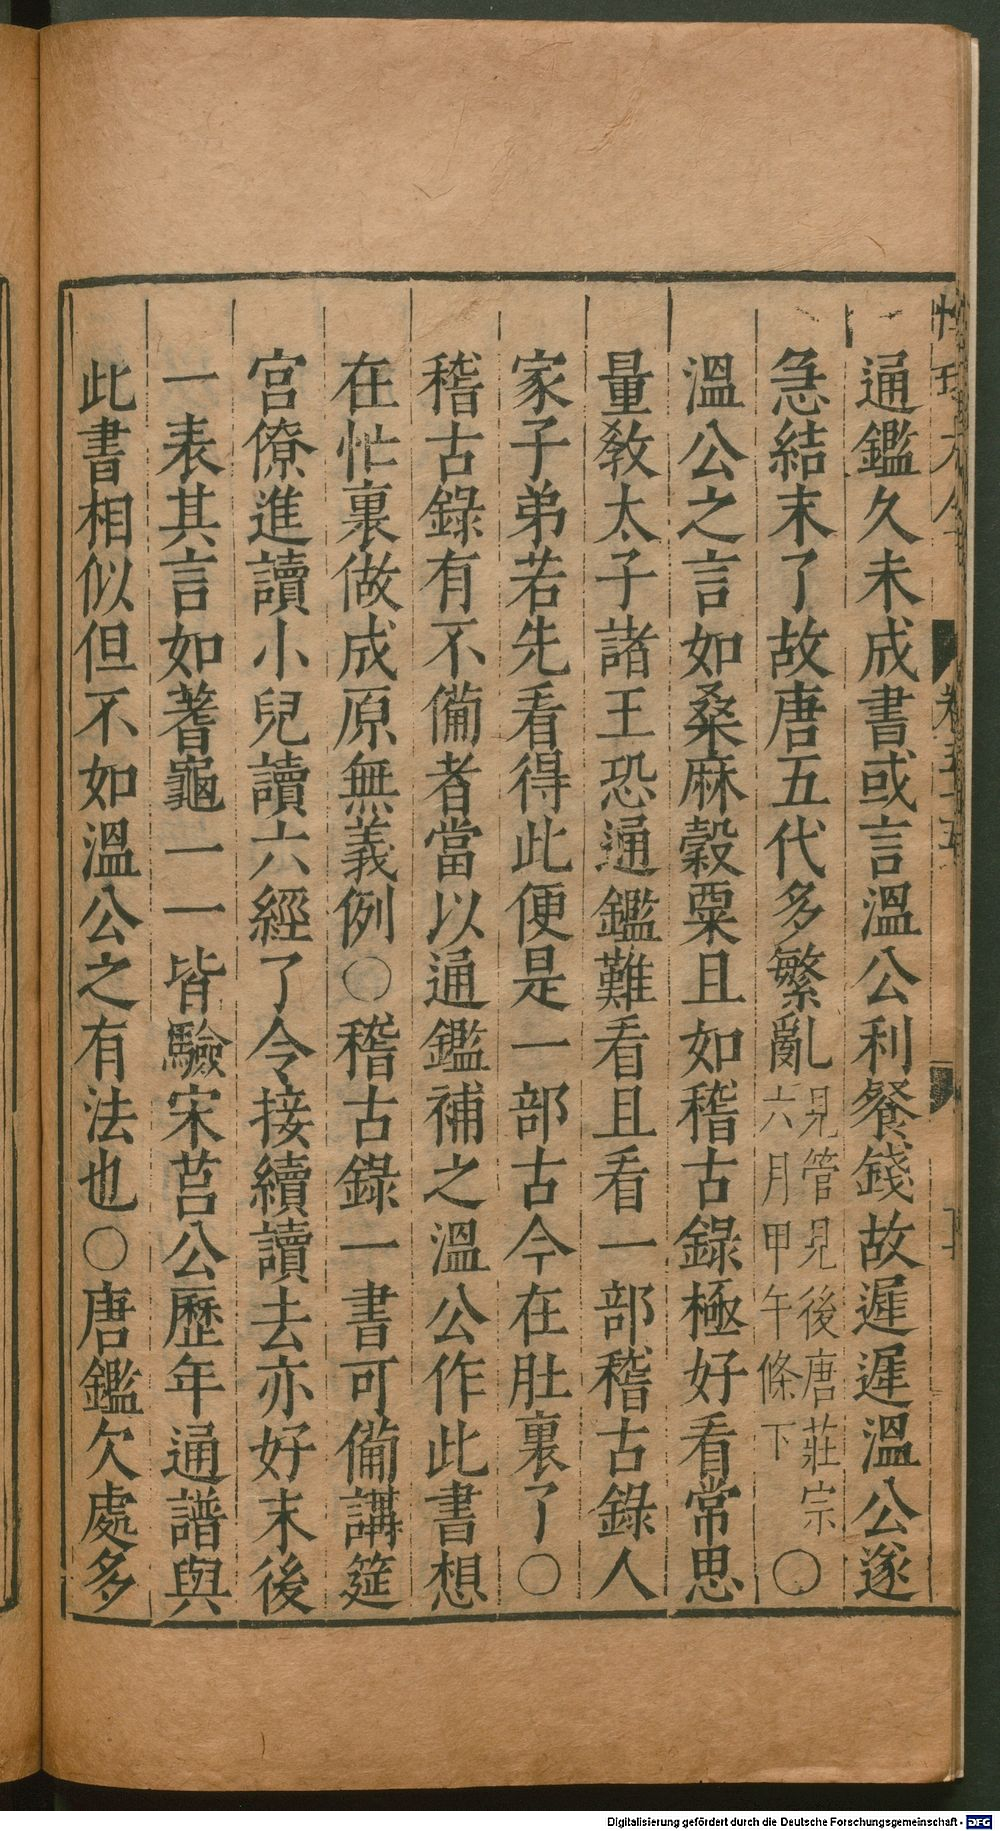 通鑑久未成書或言溫公利餐錢故遲遲溫公遂
急結末了故唐五代多繁亂見管見後唐莊宗六月甲午條下○
溫公之言如桑麻穀粟且如稽古錄極好看常思
量教太子諸王恐通鑑難看且看一部稽古錄人
家子弟若先看得此便是一部古今在肚裏了○
稽古錄有不備者當以通鑑補之溫公作此書想
在忙裏做成原無義例○稽古錄一書可備講筵
宮僚進讀小兒讀六經了令接續讀去亦好末後
一表其言如蓍龜一一皆驗宋莒公歷年通譜與
此書相似但不如溫公之有法也○唐鑑欠處多
Digitalisierung gefördert durch die Deutsche Forschungsgemeinschaft - DFG